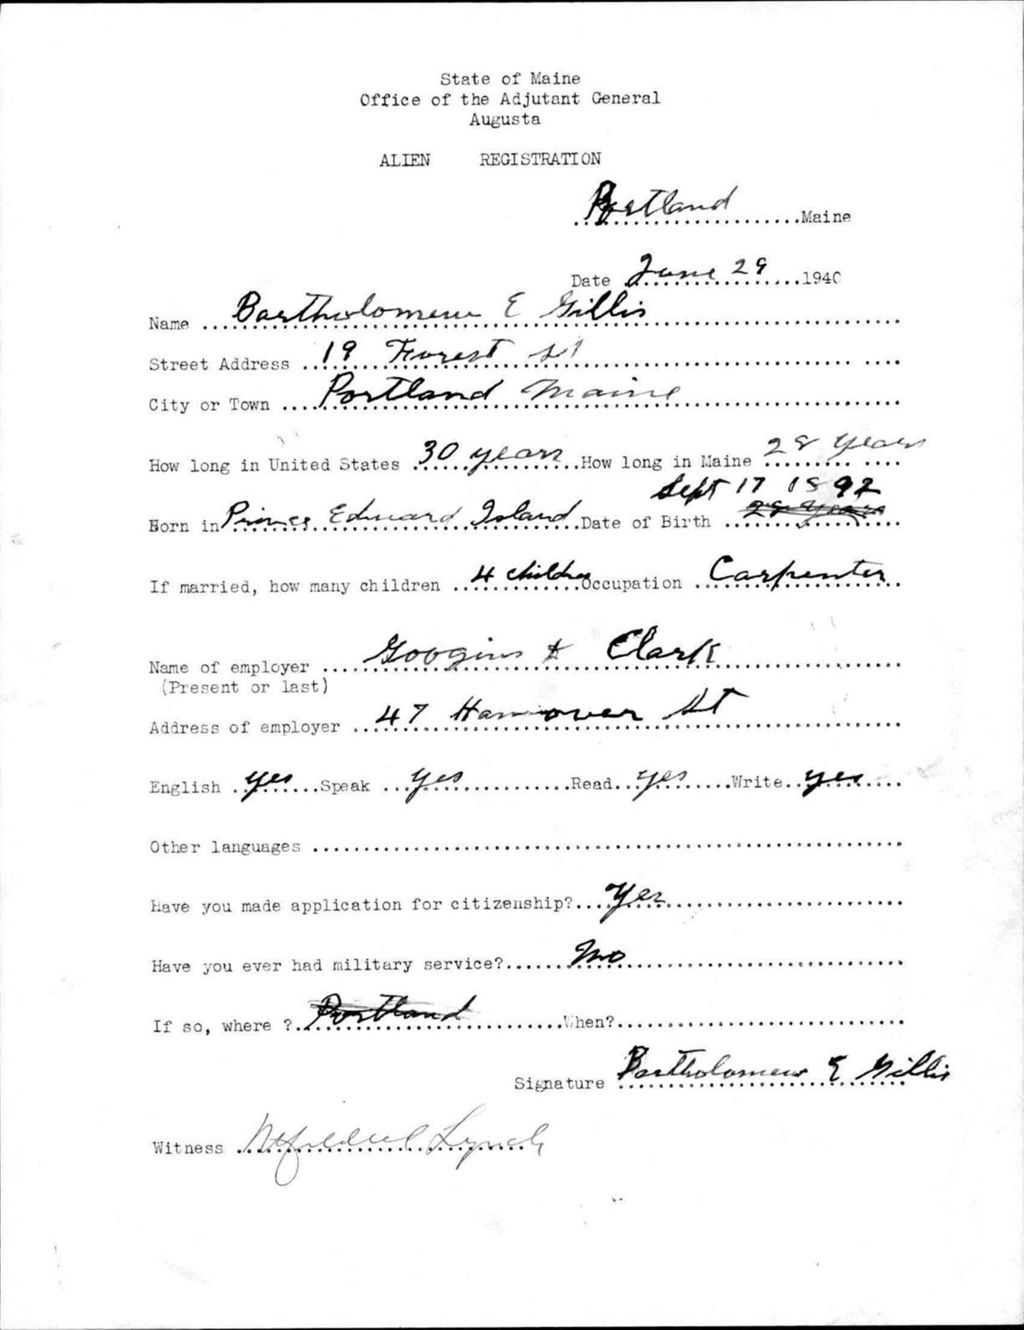 State of Maine
Office of the Adjutant General
Augusta
ALIEN REGISTRATION
Portland Maine
Date June 29 1940
Name Bartholomew E Gillis
Street Address 19 Forest St
City or Town Portland Maine
How long in United States 30 years How long in Maine 28 years
Sept 17 1892
Born in Prince Edward Island Date of Birth 28 years
If married, how many children 4 children Occupation Carpenter
Name of employer Googins & Clark
(Present or last)
Address of employer 47 Hanover St
English yes Speak yes Read yes Write yes
Other languages
Have you made application for citizenship? Yes
Have you ever had military service? No
If so, where ? Portland When?
Signature Bartholomew E Gillis
Witness Lynch